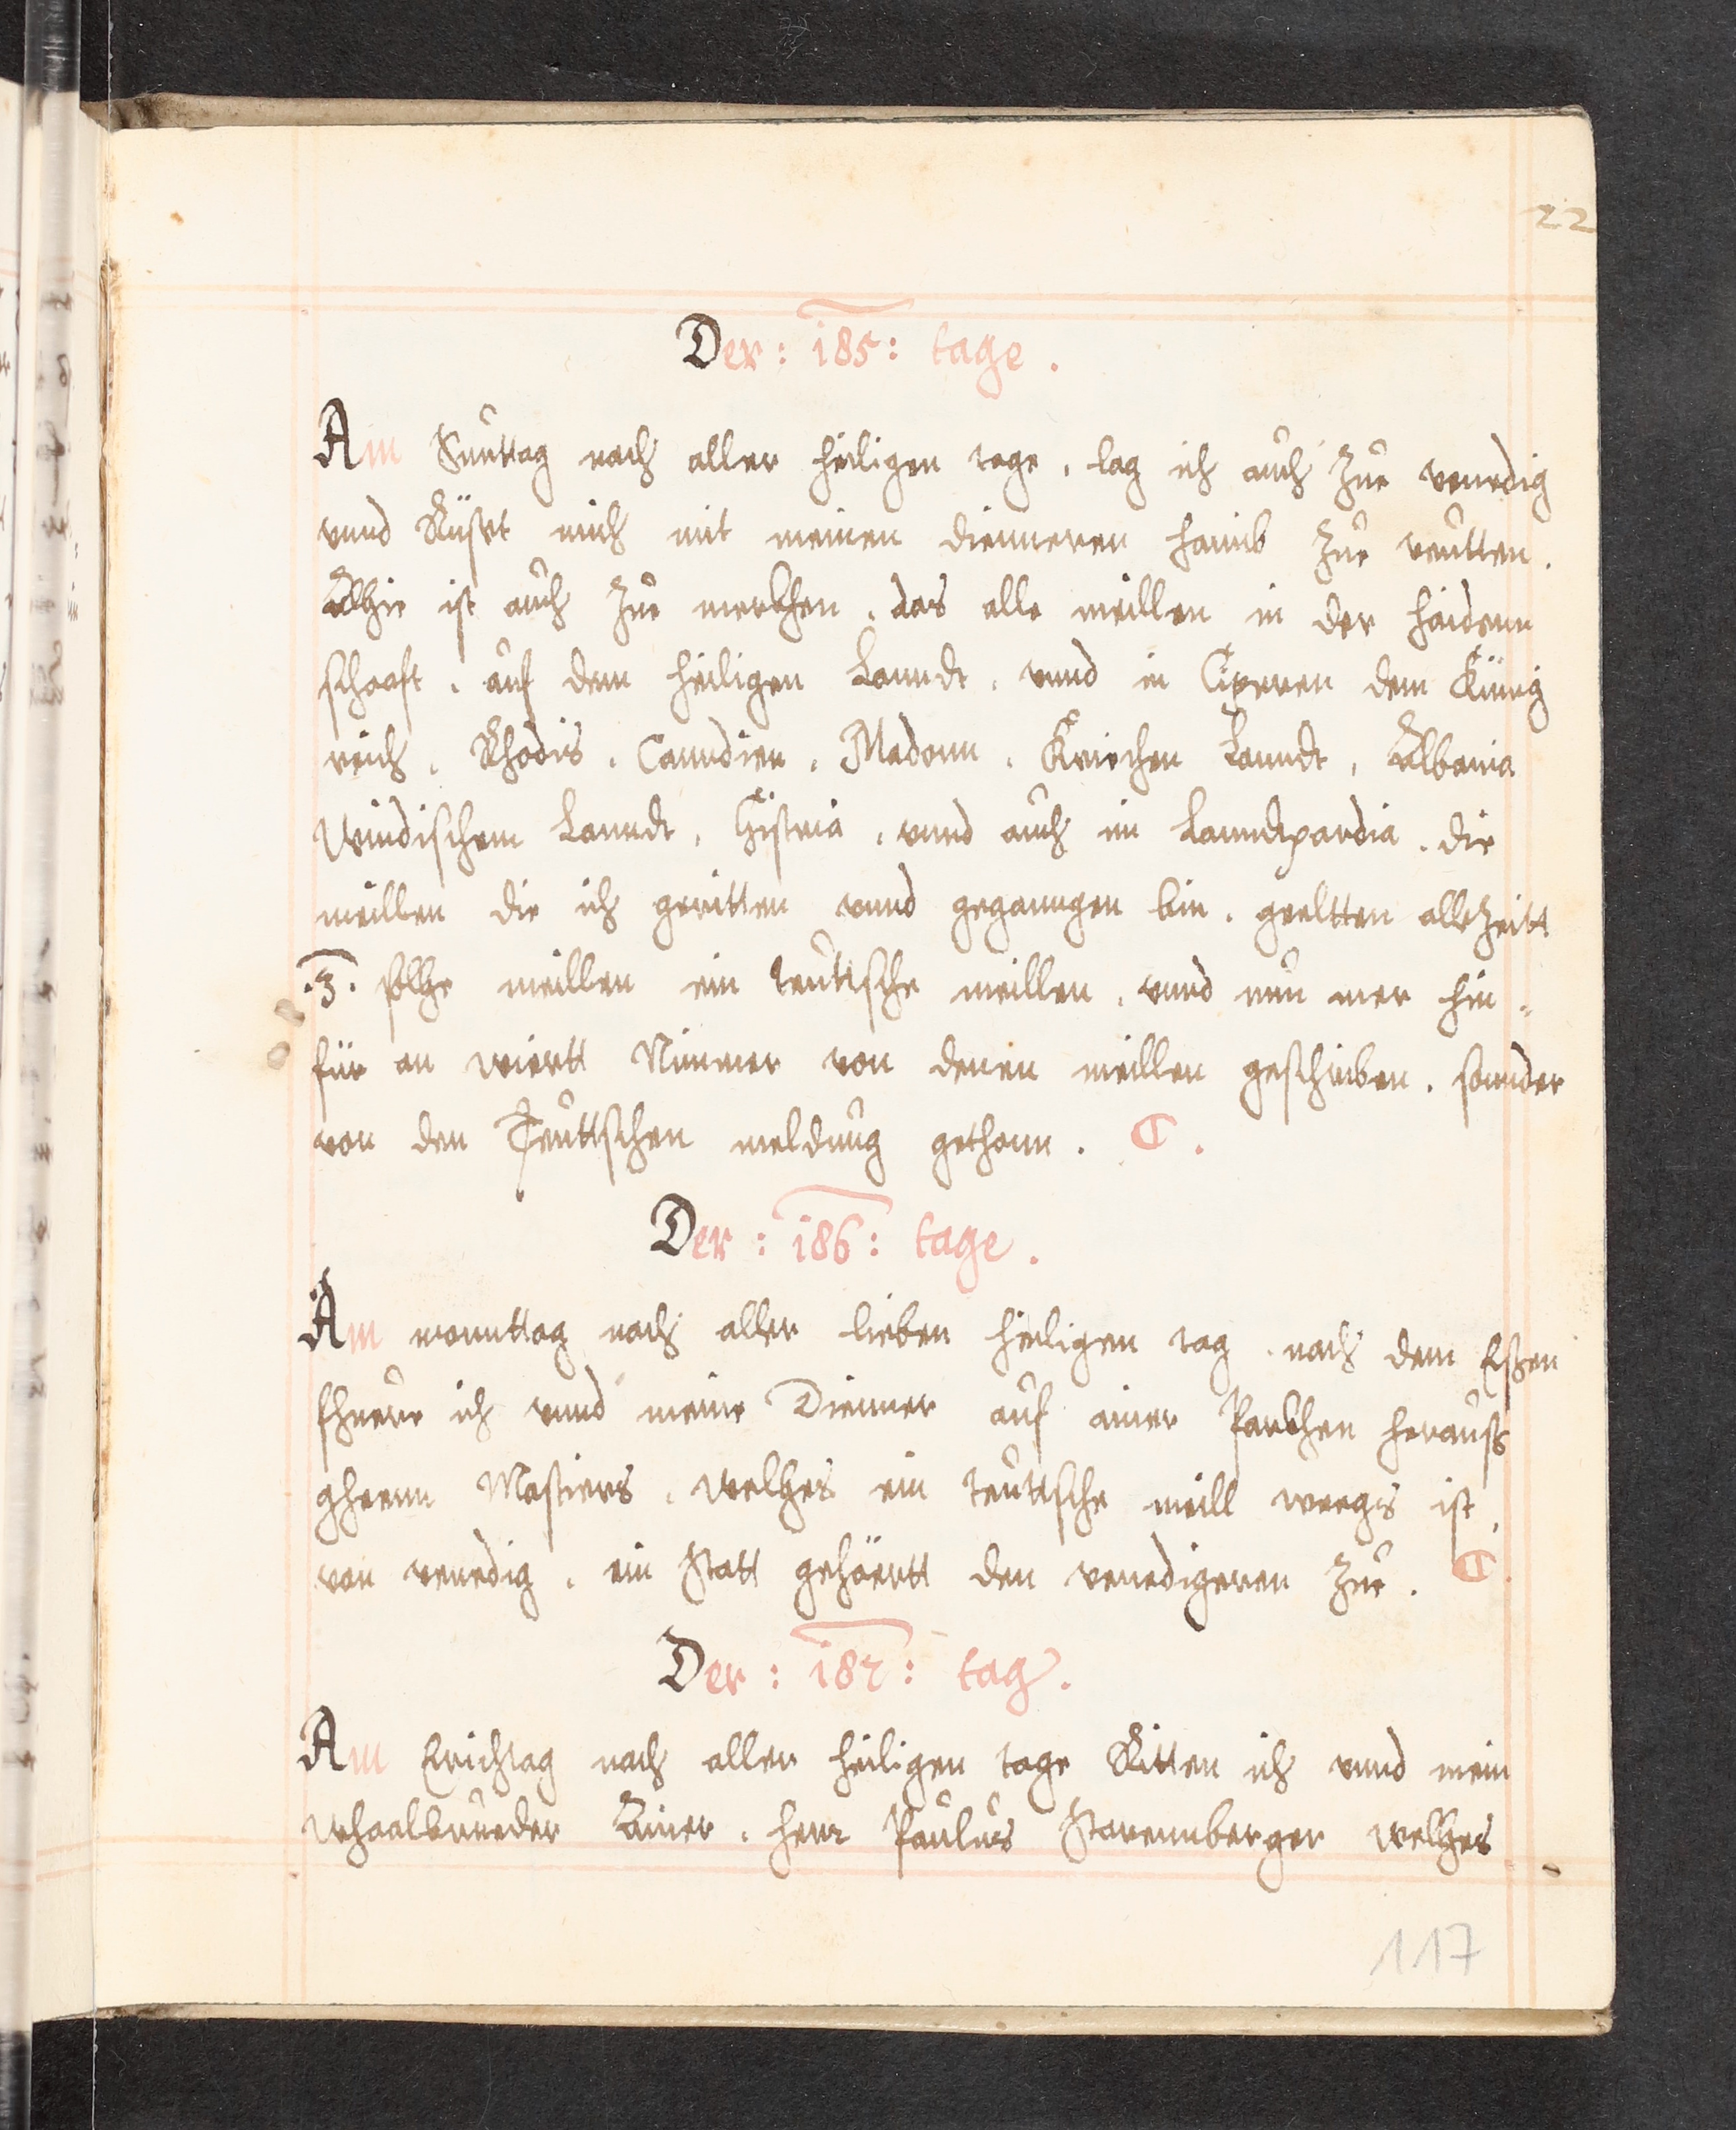 22
Der : 185 : tage .
Am Sunttag nach aller heiligen tage , lag ich auch Zue venedig
vnnd Rüsst mich mit meinen dienneren haimb Zue reutten .
Alhie ist auch Zue merckhen , das alle meillen in der haidenn
schaafft , auf dem heiligen Lanndt , vnnd in Ciperen dem Künig
reich , Rhodis , Canndien , Madonn , Kriechen Lanndt , Albania
Windischem Lanndt , Histria , vnnd auch in Lanndtpardia . die
meillen die ich geritten vnnd geganngen bin , geeltten alletzeitt
.3. solche meillen ein teutische meillen , vnnd nun mer hin=
für an wiertt Nimmer von denen meillen geschriben , sonnder
von den Teuttschen meldung gethonn . C .
Der : 186 : tage .
Am monnttag nach aller lieben heiligen tag , nach dem Essen
fhuere ich vnnd meine Dienner auf ainer Parckhen herauss
gheenn Mastiers , welches ein teutische meill weegs ist ,
von venedig , ein Statt gehöertt den venedigeren Zue . C .
Der : 187 : tag .
Am Erichtag nach aller heiligen tage Ritten ich vnnd mein
Whaalbrueder Ainer , herr Paulus Starennberger welches
117